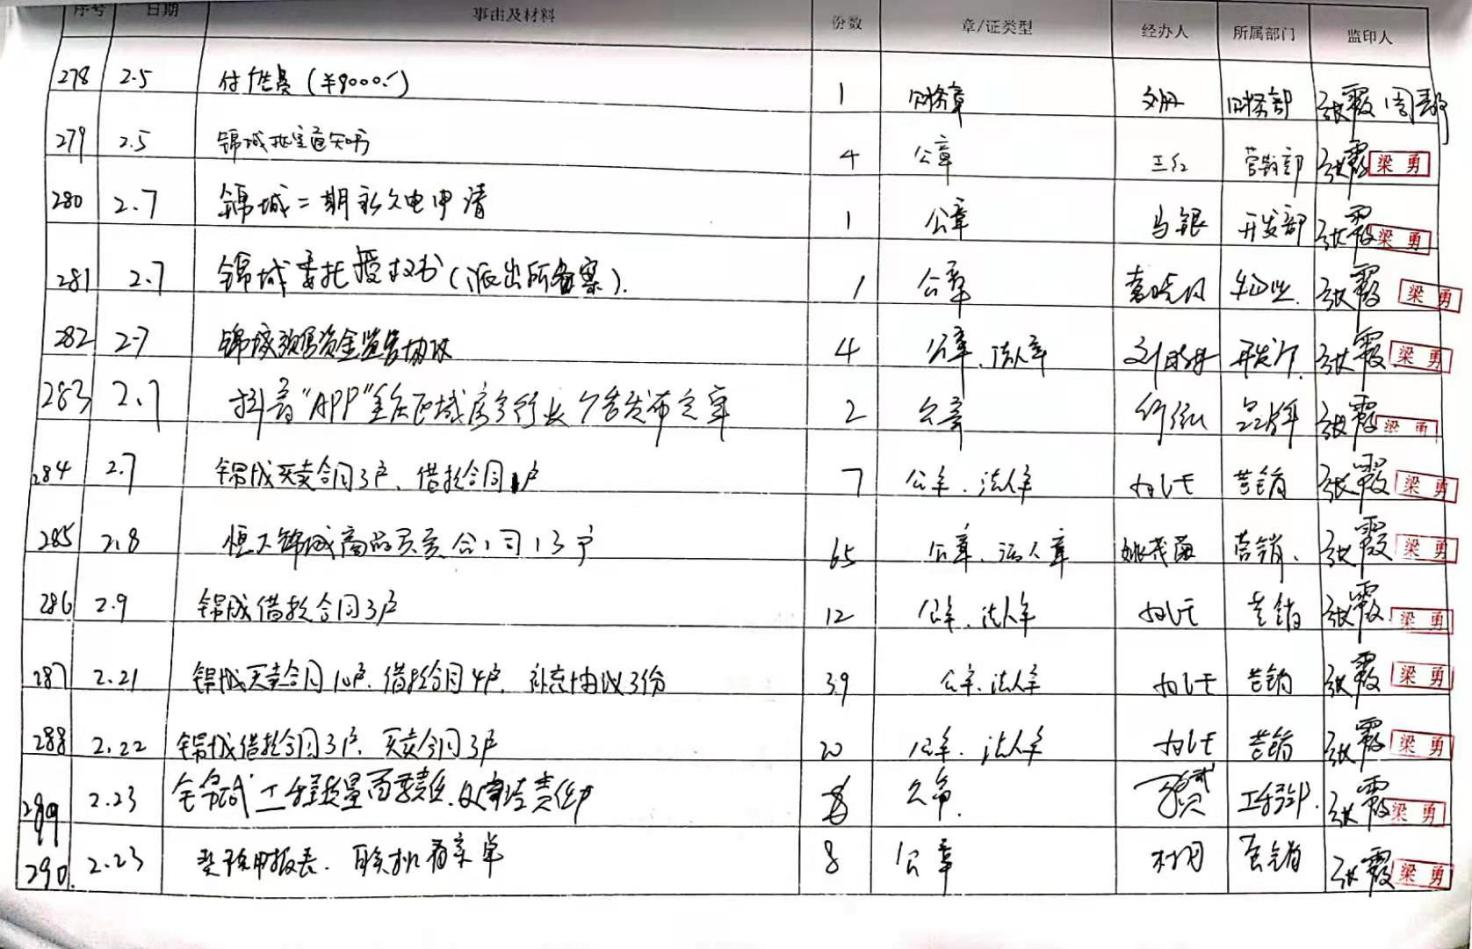 序号 日期 事由及材料 份数 章/证类型 经办人 所属部门 监印人
278 2.5 付 费(¥8000.-) 1 财务章 财务部 张霞 周
279 2.5 锦城 通知书 4 公章 王红 营销部 张霞 梁勇
280 2.7 锦城二期永久电申请 1 公章 马银 开发部 张霞 梁勇
281 2.7 锦城委托授权书(派出所备案). 1 公章 袁晓 物业. 张霞 梁勇
282 2.7 锦城预售资金监管协议 4 公章、法人章 刘 开发部 张霞 梁勇
283 2.7 抖音"APP" 区域房产行业广告发布 2 公章 品牌 张霞 梁勇
284 2.7 锦城买卖合同3户、借款合同1户 7 公章、法人章 营销 张霞 梁勇
285 2.8 恒大锦城商品买卖合同13户 65 公章、法人章 姚茂 营销、 张霞 梁勇
286 2.9 锦城借款合同3户 12 公章、法人章 营销 张霞 梁勇
287 2.21 锦城买卖合同10户、借款合同4户、补充协议3份 39 公章、法人章 营销 张霞 梁勇
288 2.22 锦城借款合同3户、买卖合同3户 20 公章、法人章 营销 张霞 梁勇
289 2.23 工程质量 公章. 工程部. 张霞 梁勇
290. 2.23 申报表、 单 8 公章 营销 张霞 梁勇